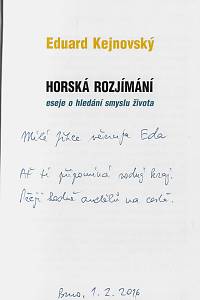 Eduard Kejnovský
HORSKÁ ROZJÍMÁNÍ
eseje o hledání smyslu života
Milé Jitce věnuje Eda
Ať ti připomíná rodný kraj.
Přeji hodně andělů na cestě.
Brno, 1. 2. 2016